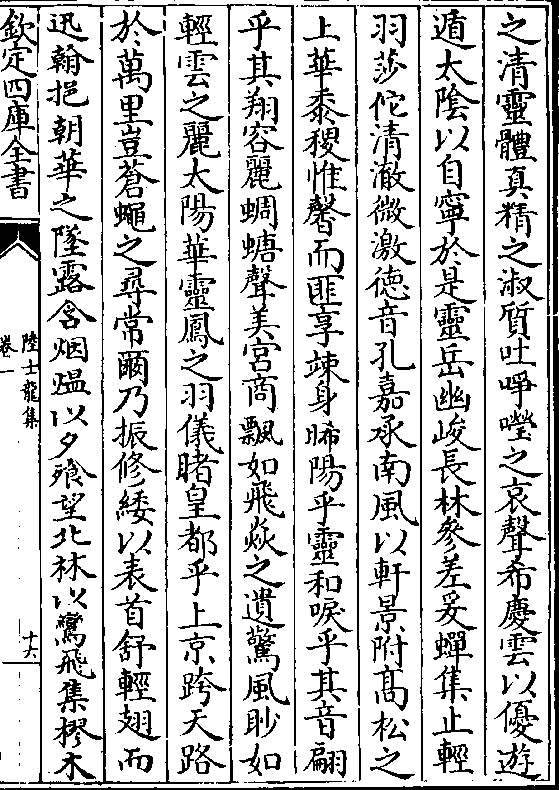 之清靈體真精之淑質吐嘒㗲之哀聲希慶雲以優遊
遁太陰以自寧於是靈岳幽峻長林參差爰蟬集止輕
羽莎佗清澈微激徳音孔嘉承南風以軒景附髙松之
上華黍稷惟馨而匪享竦身晞陽乎靈和唳乎其音翩
乎其翔容麗蜩螗聲美宮商飄如飛焱之遺驚風眇如
輕雲之麗太陽華靈鳳之羽儀睹皇都乎上京跨天路
於萬里豈蒼蠅之尋常爾乃振修緌以表首舒輕翅而
迅翰挹朝華之墜露含烟熅以夕飱望北林以鸞飛集樛木
欽定四庫全書
陸士龍集
卷一
十六